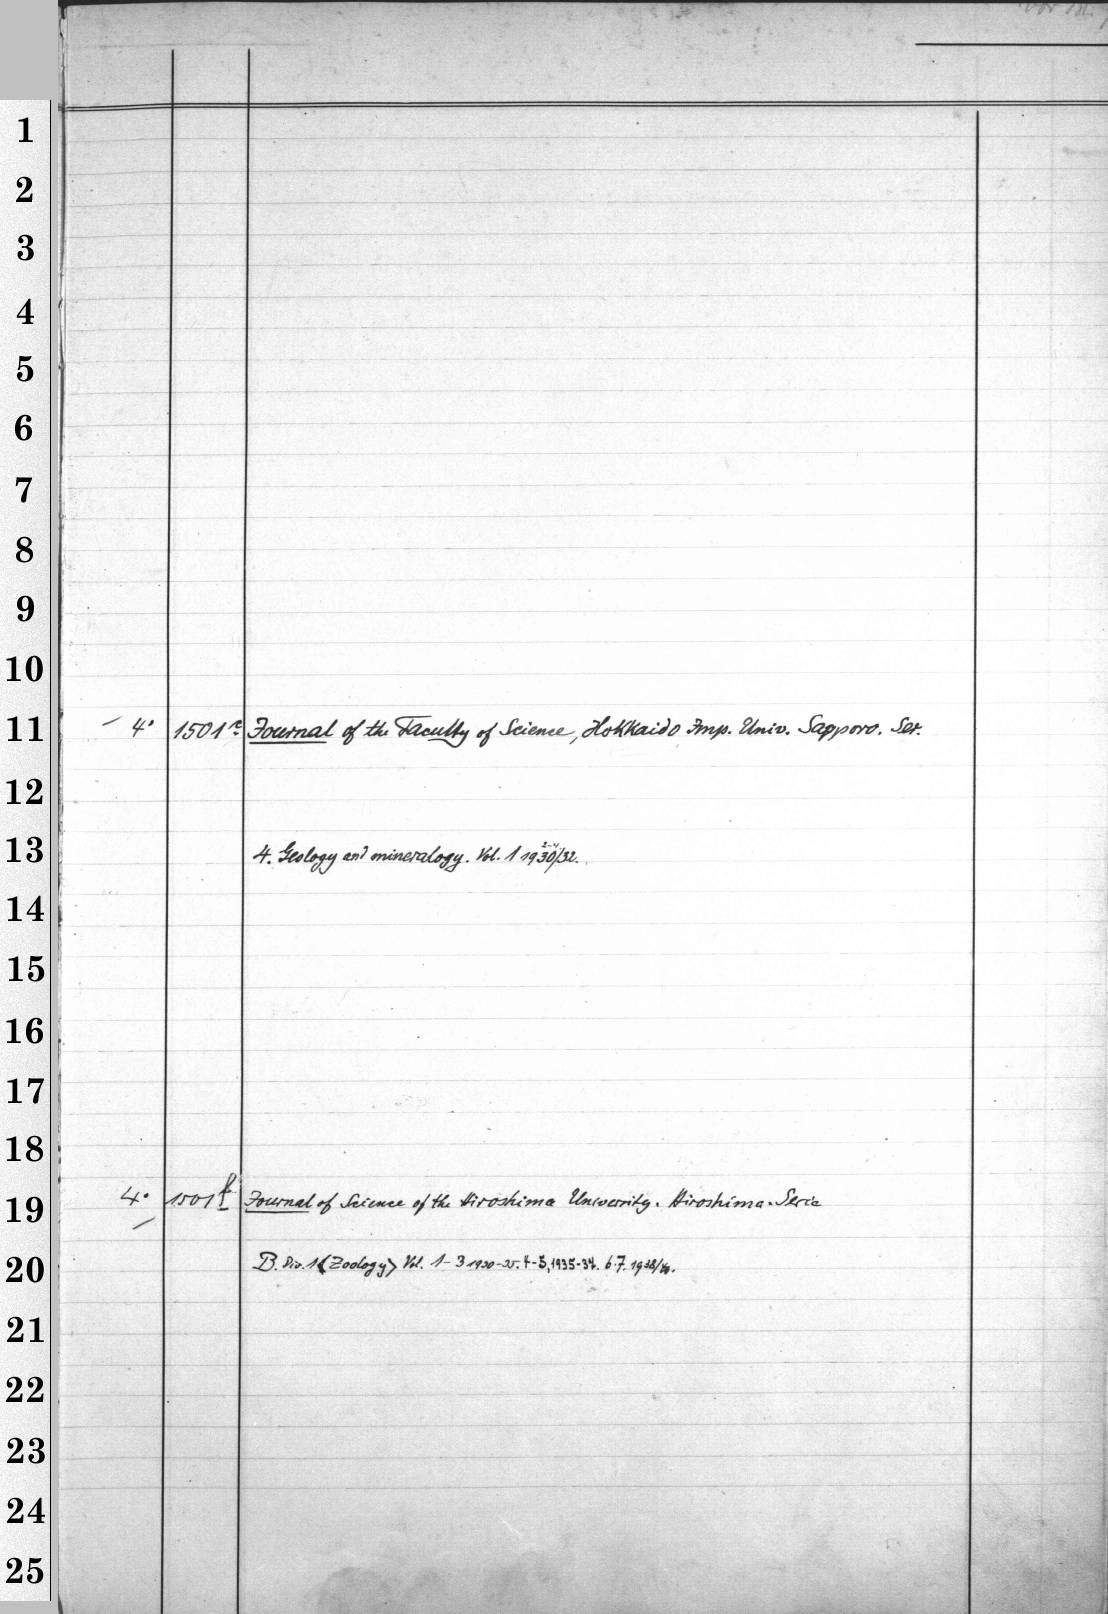 1
2
3
4
5
6
7
8
9
10
11 4° 1501e Journal of the Faculty of Science, Hokkaido Imp. Univ. Sapporo. Ser.
12
13 4. Geology and mineralogy. Vol. 1 1930/32.
14
15
16
17
18
19 4° 1501f Journal of Science of the Hiroshima University. Hiroshima. Serie
20 B. Div. 1 (Zoology) Vol. 1-3 1930-35. 4-5, 1935-37. 6.7. 1938/40.
21
22
23
24
25